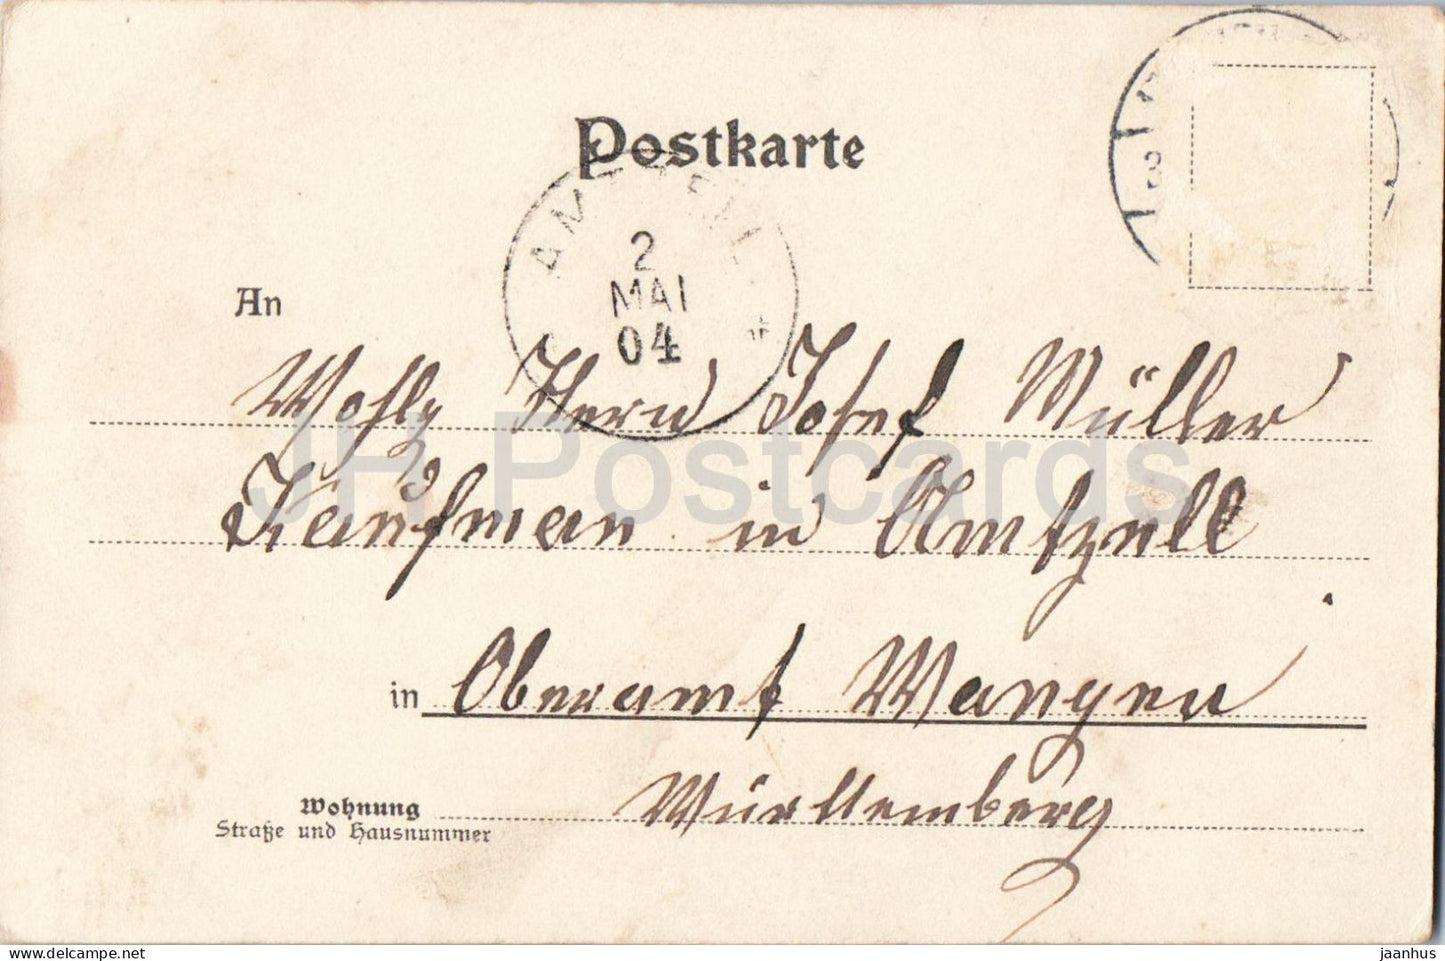 Postkarte
2
MAI
04
An
Wohlg Herrn Josef Müller
Kaufman in Amtzell
in Oberamt Wangen
Wohnung
Straße und Hausnummer
Württemberg
JH Postcards
www.delcampe.net
jaanhus